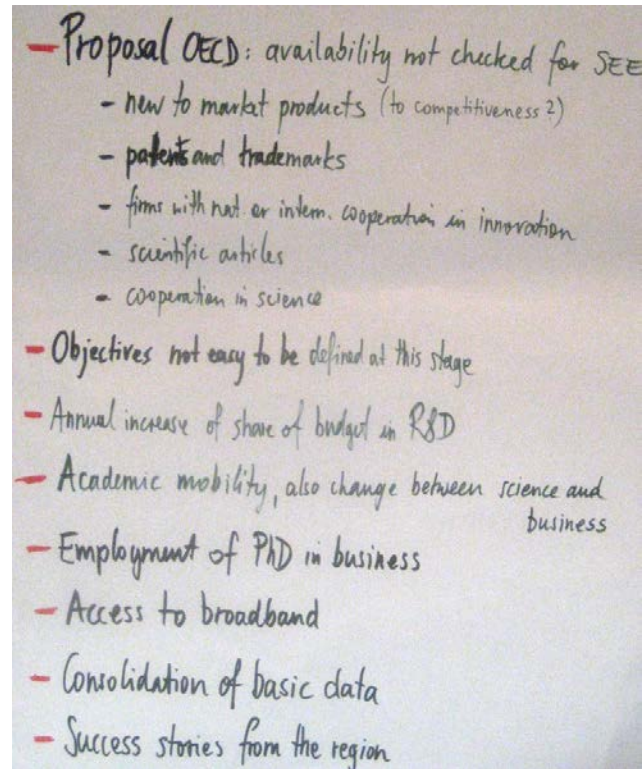 - Proposal OECD: availability not checked for SEE
- new to market products (to competitiveness ?)
- patents and trademarks
- firms with nat. or intern. cooperation in innovation
- scientific articles
- cooperation in science
- Objectives not easy to be defined at this stage
- Annual increase of share of budget in R&D
- Academic mobility, also change between science and
business
- Employment of PhD in business
- Access to broadband
- Consolidation of basic data
- Success stories from the region